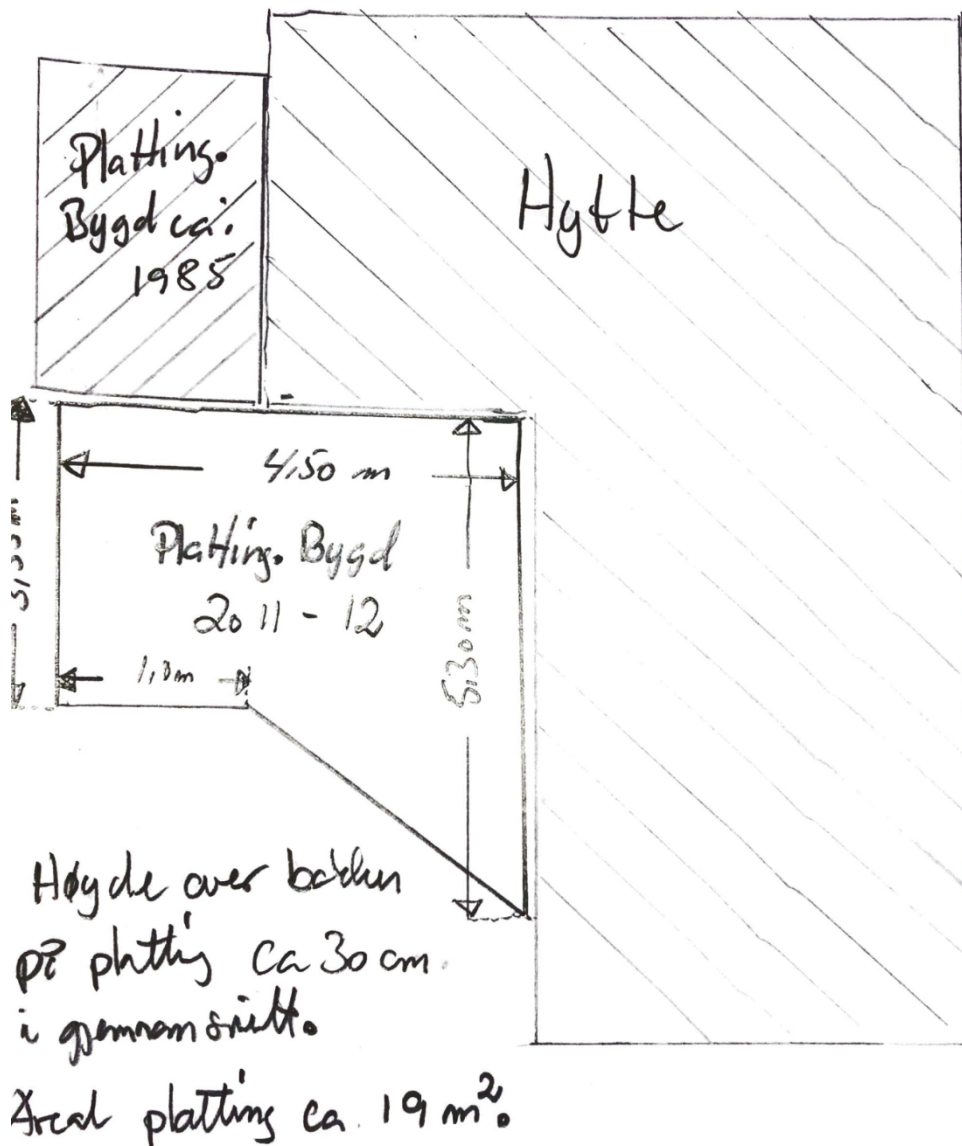 Platting.
Bygd ca:
1985
Hytte
4,50 m
Platting. Bygd
2011 - 12
5,30m
Høyde over bakken
på platting ca 30 cm.
i gjennomsnitt.
Areal platting ca. 19 m².